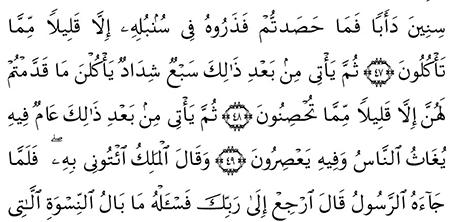 سِنِينَ دَأَبًا فَمَا حَصَدتُّمْ فَذَرُوهُ فِى سُنۢبُلِهِۦٓ إِلَّا قَلِيلًا مِّمَّا
تَأْكُلُونَ ﴿٤٧﴾ ثُمَّ يَأْتِى مِنۢ بَعْدِ ذَٰلِكَ سَبْعٌ شِدَادٌ يَأْكُلْنَ مَا قَدَّمْتُمْ
لَهُنَّ إِلَّا قَلِيلًا مِّمَّا تُحْصِنُونَ ﴿٤٨﴾ ثُمَّ يَأْتِى مِنۢ بَعْدِ ذَٰلِكَ عَامٌ فِيهِ
يُغَاثُ ٱلنَّاسُ وَفِيهِ يَعْصِرُونَ ﴿٤٩﴾ وَقَالَ ٱلْمَلِكُ ٱئْتُونِى بِهِۦ ۖ فَلَمَّا
جَآءَهُ ٱلرَّسُولُ قَالَ ٱرْجِعْ إِلَىٰ رَبِّكَ فَسْـَٔلْهُ مَا بَالُ ٱلنِّسْوَةِ ٱلَّٰتِى